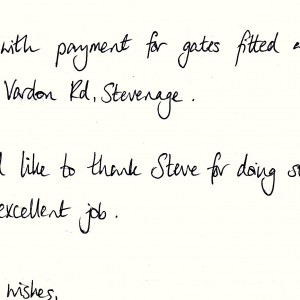 with payment for gates fitted a
Vardon Rd, Stevenage.
l like to thank Steve for doing s
excellent job.
wishes,